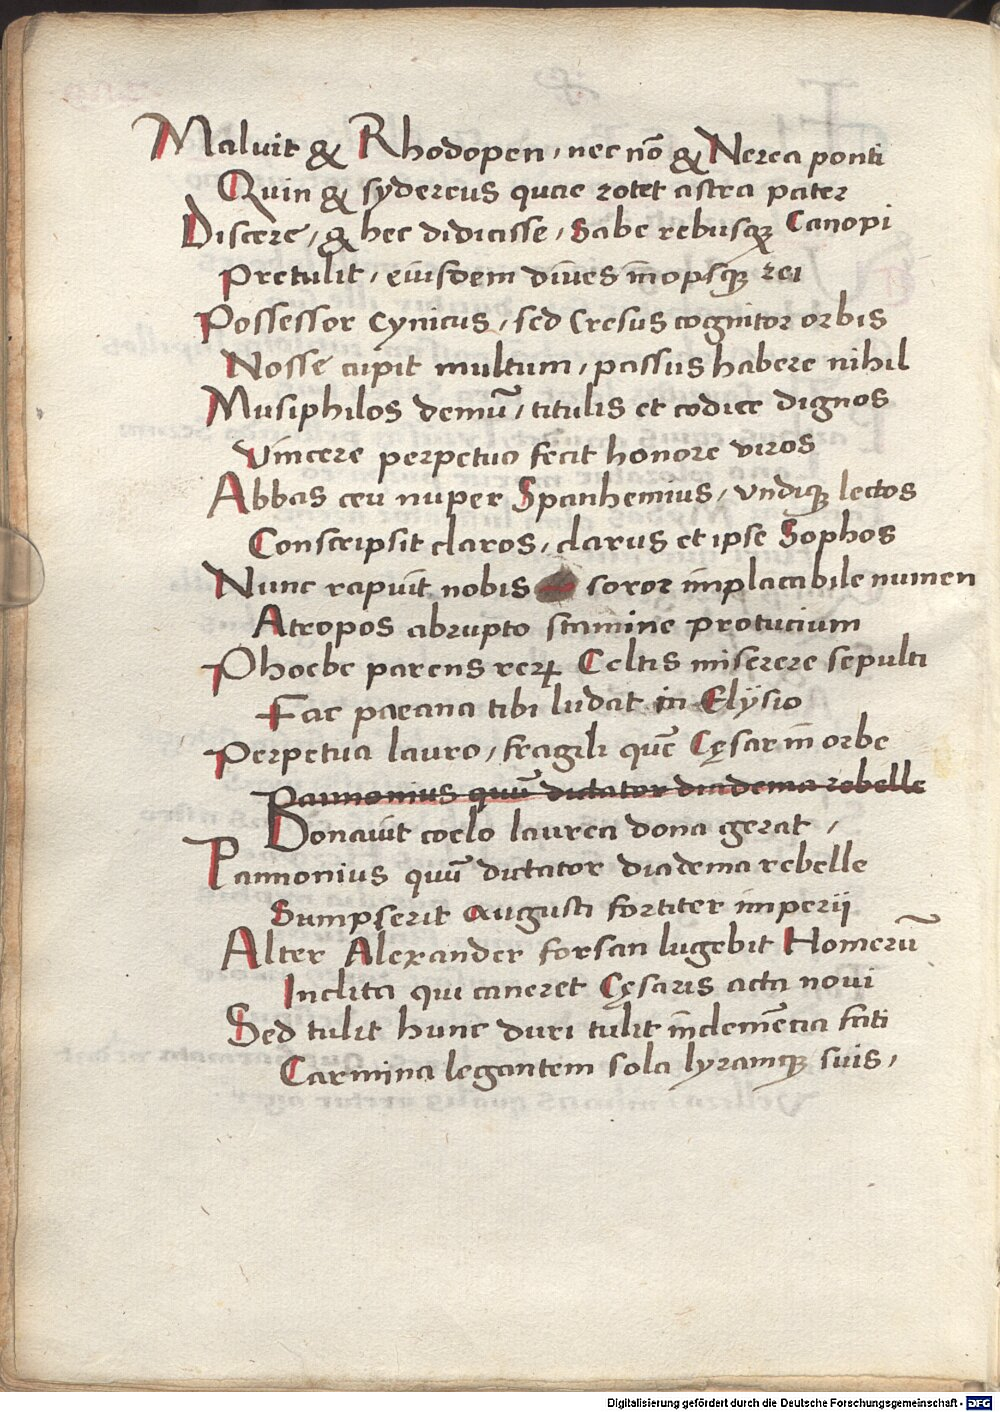 Maluit & Rhodopen, nec nō & Nerea ponti
Quin & sydereus quae rotet astra pater
Discere, & hec didicisse, Sabe rebusqꝫ Canopi
Pretulit, eiusdem diues inopsqꝫ rei
Possessor Cynicus, sed Cresus cognitor orbis
Nosse cupit multum, passus habere nihil
Musiphilos demū, titulis et codice dignos
Vincere perpetuo fecit honore viros
Abbas ceu nuper Spanhemius, vndiqꝫ lectos
Conscripsit claros, clarus et ipse Sophos
Nunc rapuit nobis soror implacabile numen
Atropos abrupto stamine protucium
Phoebe parens rerꝝ Celtis miserere sepulti
Fac paeana tibi ludat in Elÿsio
Perpetua lauro, fragili quē Cęsar in orbe
Pannonius quū dictator diadema rebelle
Donauit coelo laurea dona gerat,
Pannonius quū dictator diadema rebelle
Sumpserit Augusti fortiter imperij
Alter Alexander forsan lugebit Homerū
Inclita qui caneret Cęsaris acta noui
Sed tulit hunc duri tulit inclemēcia fati
Carmina legantem sola lyramqꝫ suis,
Digitalisierung gefördert durch die Deutsche Forschungsgemeinschaft - DFG